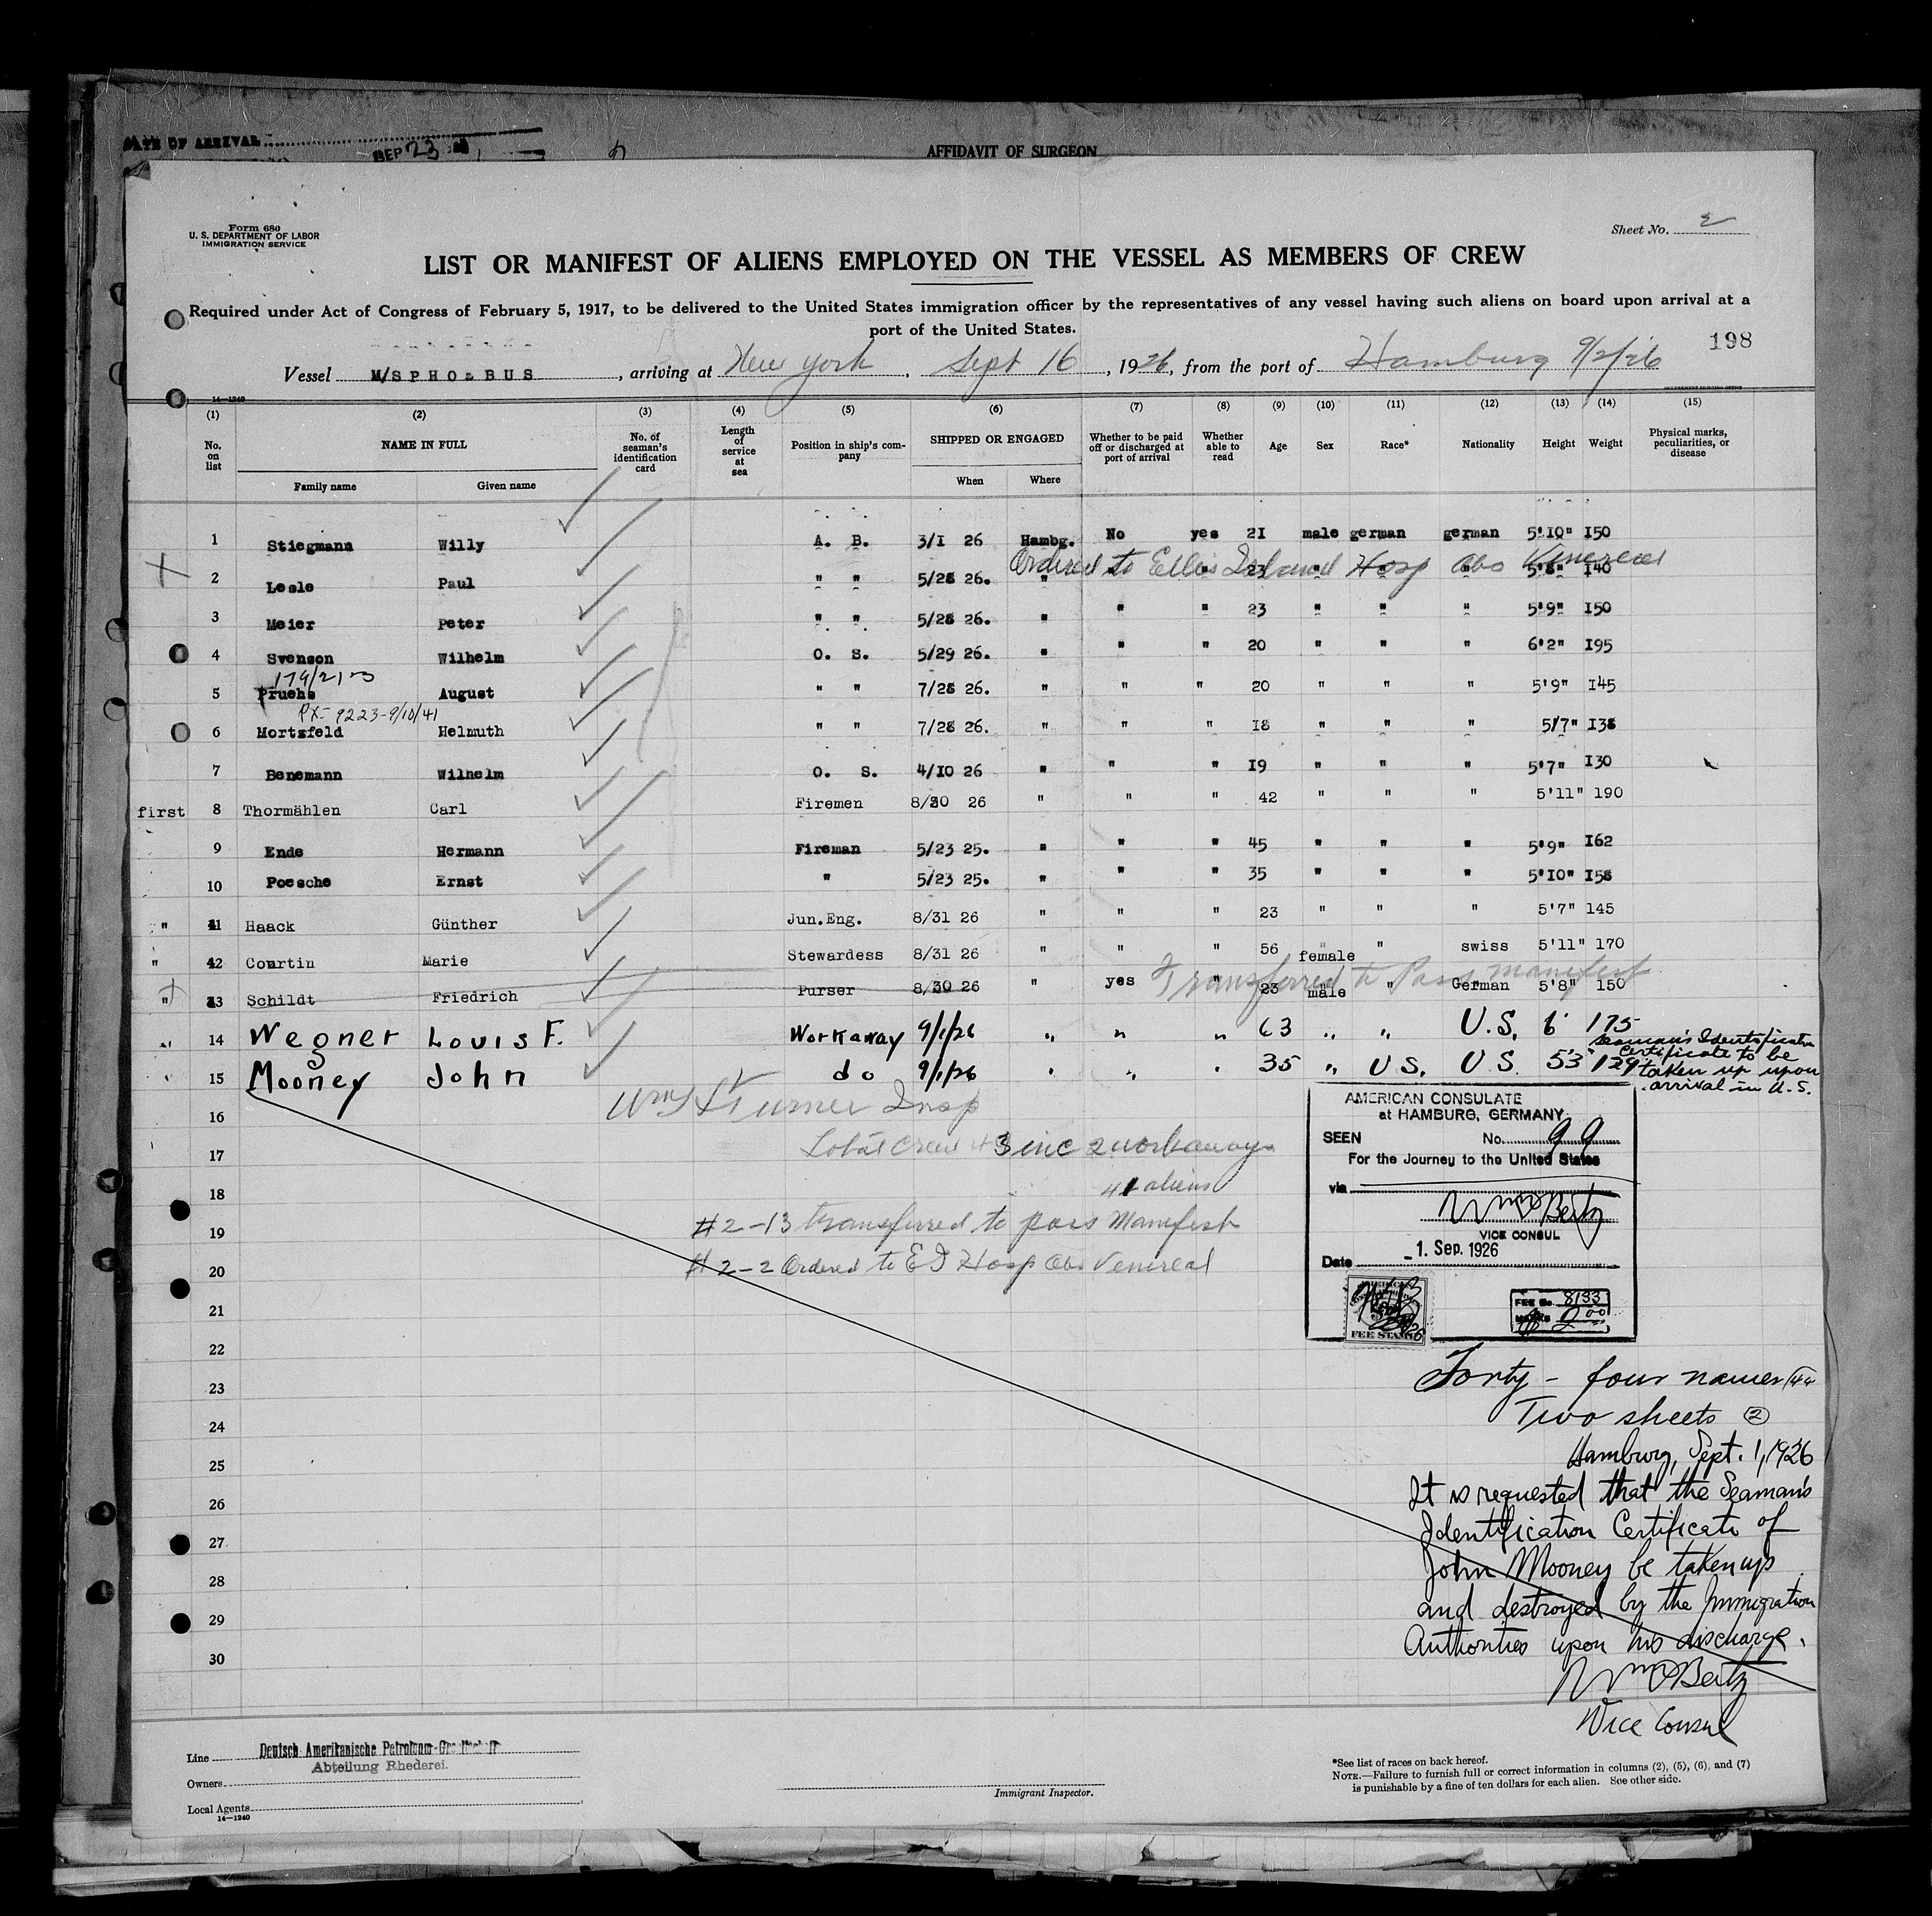 DATE OF ARRIVAL
SEP 23
AFFIDAVIT OF SURGEON
Form 680
U. S. DEPARTMENT OF LABOR
IMMIGRATION SERVICE
Sheet No. 2
LIST OR MANIFEST OF ALIENS EMPLOYED ON THE VESSEL AS MEMBERS OF CREW
Required under Act of Congress of February 5, 1917, to be delivered to the United States immigration officer by the representatives of any vessel having such aliens on board upon arrival at a
port of the United States.
198
Vessel M/S PHOEBUS, arriving at New York, Sept 16, 1926, from the port of Hamburg 9/2/26
14—1240
(1) (2) (3) (4) (5) (6) (7) (8) (9) (10) (11) (12) (13) (14) (15)
No. on list
NAME IN FULL
Family name Given name
No. of seaman's identification card
Length of service at sea
Position in ship's company
SHIPPED OR ENGAGED
When Where
Whether to be paid off or discharged at port of arrival
Whether able to read
Age Sex Race* Nationality Height Weight
Physical marks, peculiarities, or disease
1 Stiegmann Willy A. B. 3/1 26 Hambg. No yes 21 male german german 5'10" 150
Ordered to Ellis Island Hosp Obs Venereal
2 Lesle Paul " " 5/28 26. " " " 23 " " " 5'8" 140
3 Meier Peter " " 5/28 26. " " " 23 " " " 5'9" 150
4 Svenson Wilhelm O. S. 5/29 26. " " " 20 " " " 6'2" 195
179/213
5 Pruehs August " " 7/28 26. " " " 20 " " " 5'9" 145
PX- 9223-9/10/41
6 Mortzfeld Helmuth " " 7/28 26. " " " 18 " " " 5/7" 138
7 Benemann Wilhelm O. S. 4/10 26 " " " 19 " " " 5'7" 130
first 8 Thormählen Carl Firemen 8/30 26 " " " 42 " " " 5'11" 190
9 Ende Hermann Fireman 5/23 25. " " " 45 " " " 5'9" 162
10 Poesche Ernst " 5/23 25. " " " 35 " " " 5'10" 158
" 11 Haack Günther Jun.Eng. 8/31 26 " " " 23 " " " 5'7" 145
" 12 Courtin Marie Stewardess 8/31 26 " " " 56 female " swiss 5'11" 170
Transferred to Pass manifest
" 13 Schildt Friedrich Purser 8/30 26 " yes " 23 male " German 5'8" 150
" 14 Wegner Louis F. Workaway 9/1/26 " " " 63 " " U.S. 6' 175
15 Mooney John do 9/1/26 " " " 35 " U.S. U.S. 5'3" 129
Seaman's Identification
Certificate to be
taken up upon
arrival in U.S.
16
Turner Insp
17
Total crew 43 inc 2 workaways
18
41 aliens
19
#2-13 transferred to pass Manifest
20
#2-2 Ordered to E I Hosp Obs Venereal
21
22
23
24
25
26
27
28
29
30
AMERICAN CONSULATE
at HAMBURG, GERMANY
SEEN No. 99
For the Journey to the United States
via
VICE CONSUL
Date 1. Sep. 1926
FEE STAMP
FEE No. 8133
MARKS 2.00
Forty-four names (44
Two sheets (2)
Hamburg, Sept. 1, 1926
It is requested that the Seaman's
Identification Certificate of
John Mooney be taken up
and destroyed by the Immigration
Authorities upon his discharge.
Vice Consul
Line Deutsch Amerikanische Petroleum-
Abteilung Rhederei.
Owners
Local Agents
14—1240
Immigrant Inspector.
*See list of races on back hereof.
NOTE.—Failure to furnish full or correct information in columns (2), (5), (6), and (7)
is punishable by a fine of ten dollars for each alien. See other side.